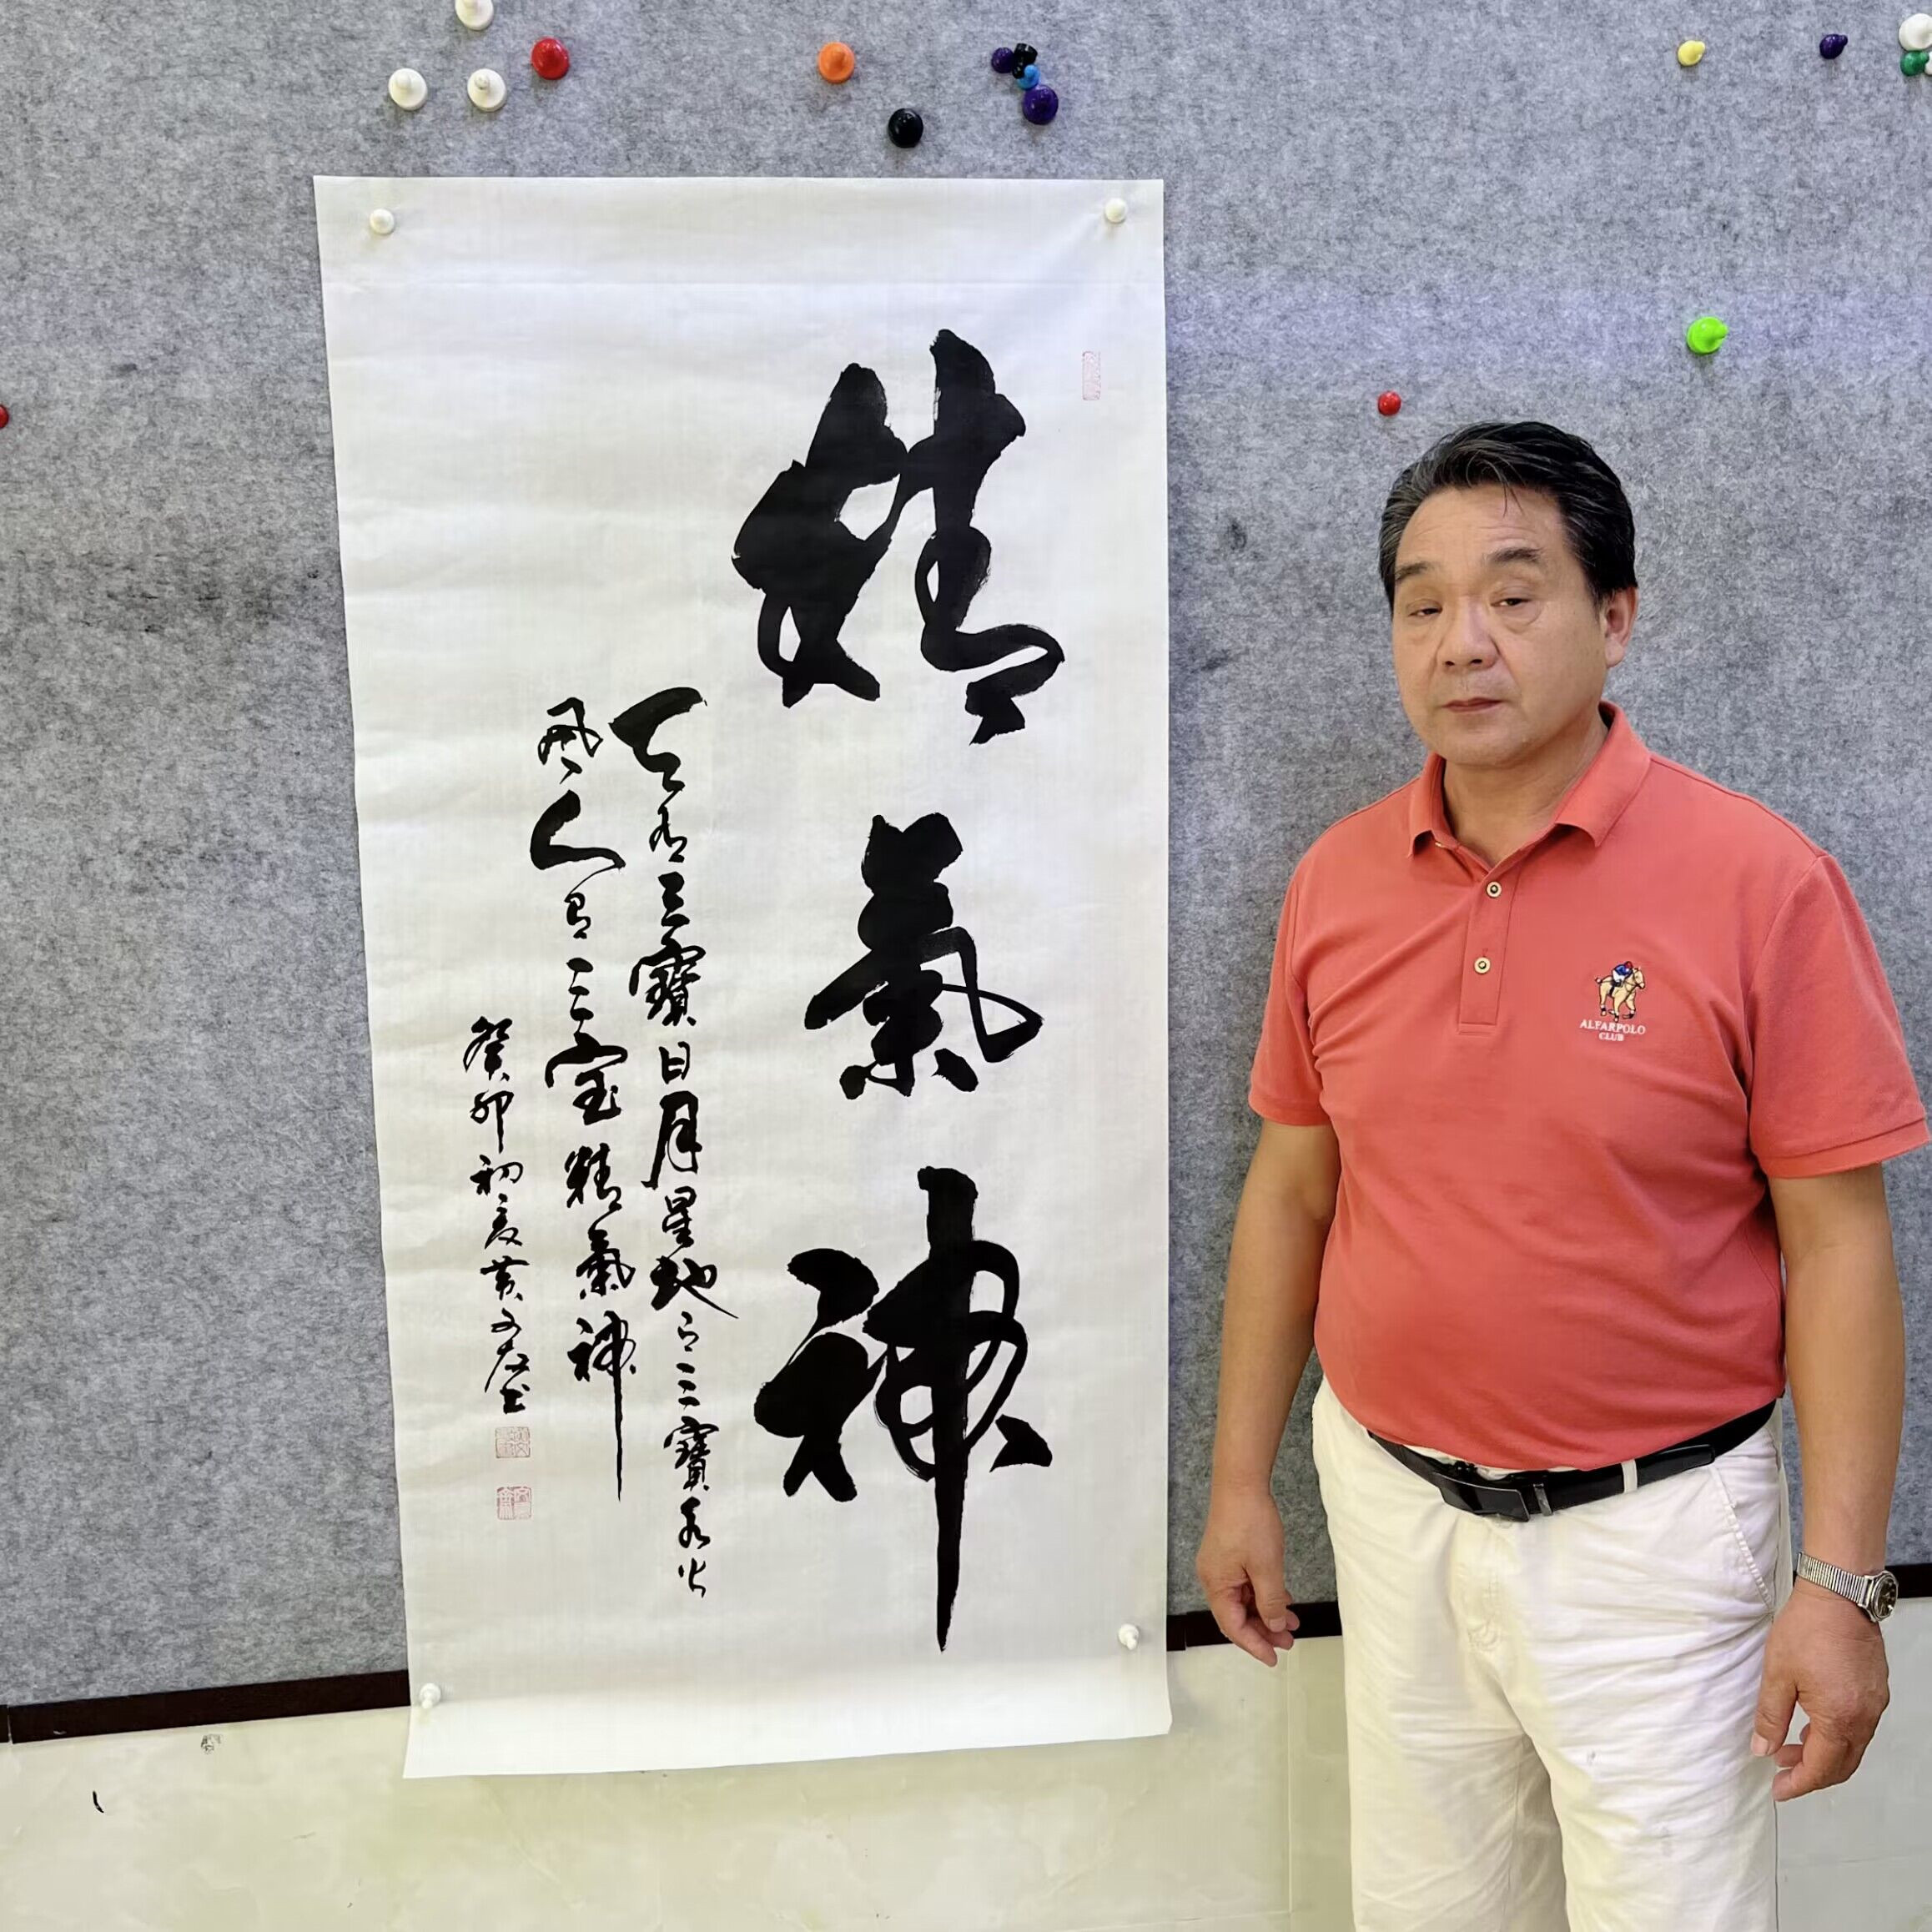 精氣神
天有三寶日月星地有三寶水火
風人有三宝精氣神
癸卯初夏黄文左书
ALFARPOLO
CLUB